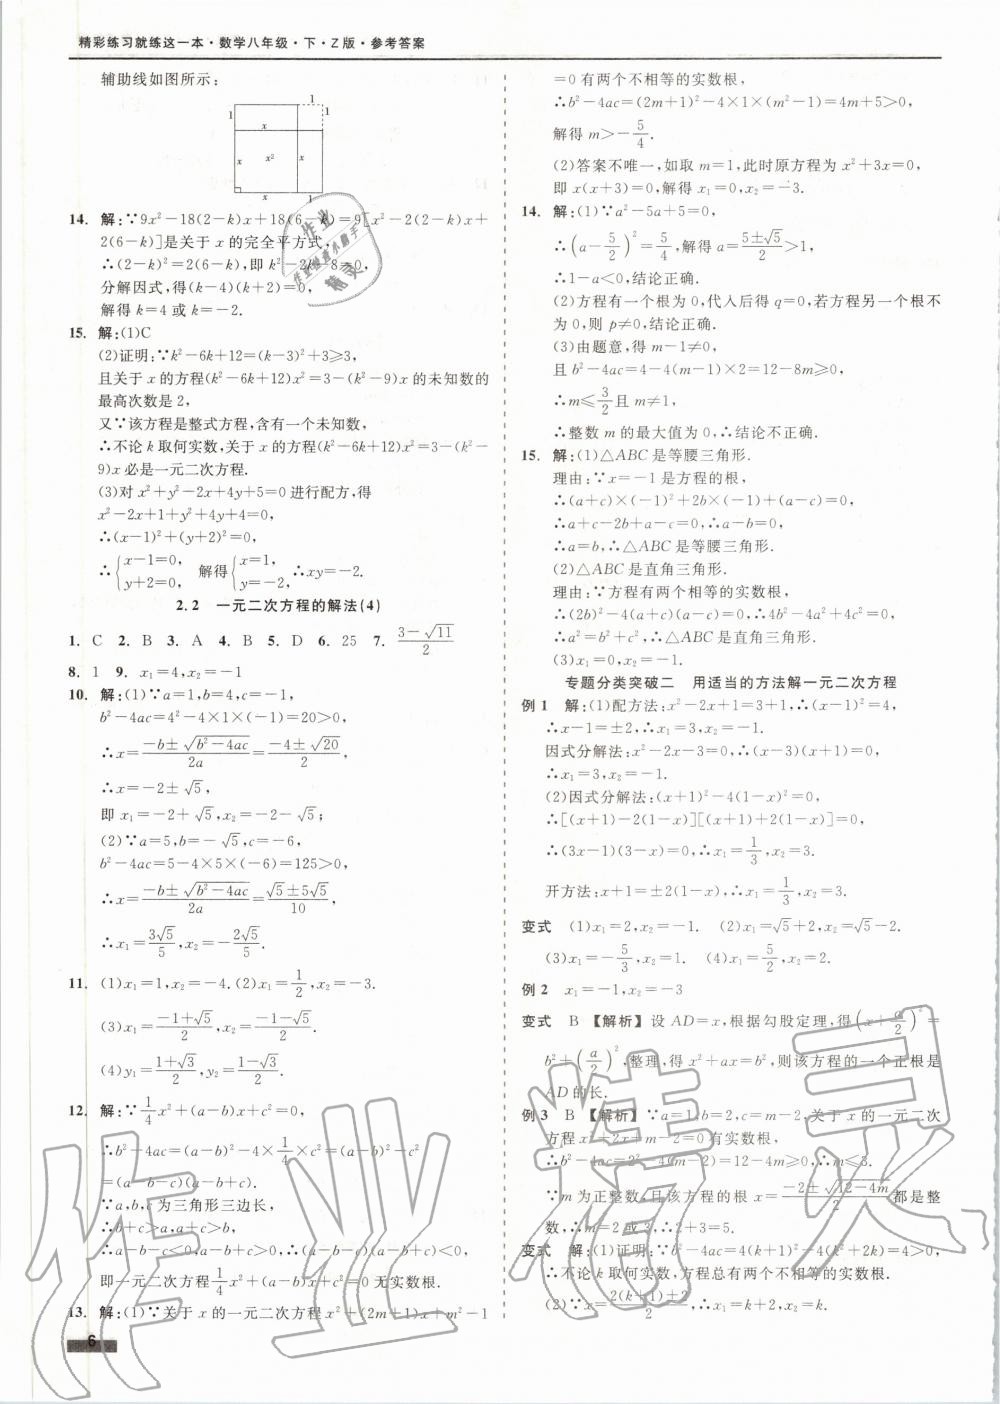 精彩练习就练这一本·数学八年级·下·Z版·参考答案
辅助线如图所示：
1
1
1
x
x
x²
x
x
1
14. 解：∵9x²－18(2－k)x＋18(6－k)＝9[x²－2(2－k)x＋
2(6－k)]是关于 x 的完全平方式，
∴(2－k)²＝2(6－k)，即 k²－2k－8＝0，
分解因式，得(k－4)(k＋2)＝0，
解得 k＝4 或 k＝－2.
15. 解：(1)C
(2)证明：∵k²－6k＋12＝(k－3)²＋3≥3，
且关于 x 的方程(k²－6k＋12)x²＝3－(k²－9)x 的未知数的
最高次数是 2，
又∵该方程是整式方程，含有一个未知数，
∴不论 k 取何实数，关于 x 的方程(k²－6k＋12)x²＝3－(k²－
9)x 必是一元二次方程.
(3)对 x²＋y²－2x＋4y＋5＝0 进行配方，得
x²－2x＋1＋y²＋4y＋4＝0，
∴(x－1)²＋(y＋2)²＝0，
∴{x－1＝0，y＋2＝0， 解得{x＝1，y＝－2， ∴xy＝－2.
2.2 一元二次方程的解法(4)
1. C 2. B 3. A 4. B 5. D 6. 25 7. (3－√11)/2
8. 1 9. x₁＝4，x₂＝－1
10. 解：(1)∵a＝1，b＝4，c＝－1，
b²－4ac＝4²－4×1×(－1)＝20>0，
∴x＝(－b±√(b²－4ac))/2a＝(－4±√20)/2，
∴x＝－2±√5，
即 x₁＝－2＋√5，x₂＝－2－√5；
(2)∵a＝5，b＝－√5，c＝－6，
b²－4ac＝5－4×5×(－6)＝125>0，
∴x＝(－b±√(b²－4ac))/2a＝(√5±5√5)/10，
∴x₁＝3√5/5，x₂＝－2√5/5.
11. (1)x₁＝1，x₂＝－4. (2)x₁＝1/2，x₂＝－3.
(3)x₁＝(－1＋√5)/2，x₂＝(－1－√5)/2.
(4)y₁＝(1＋√3)/2，y₂＝(1－√3)/2.
12. 解：∵1/4x²＋(a－b)x＋c²＝0，
∴b²－4ac＝(a－b)²－4×1/4×c²＝(a－b)²－c²
＝(a－b－c)(a－b＋c).
∵a，b，c 为三角形三边长，
∴b＋c>a，a＋c>b，
∴a－b－c<0，a－b＋c>0，∴(a－b－c)(a－b＋c)<0，
即一元二次方程1/4x²＋(a－b)x＋c²＝0 无实数根.
13. 解：(1)∵关于 x 的一元二次方程 x²＋(2m＋1)x＋m²－1
6
＝0 有两个不相等的实数根，
∴b²－4ac＝(2m＋1)²－4×1×(m²－1)＝4m＋5>0，
解得 m>－5/4.
(2)答案不唯一，如取 m＝1，此时原方程为 x²＋3x＝0，
即 x(x＋3)＝0，解得 x₁＝0，x₂＝－3.
14. 解：(1)∵a²－5a＋5＝0，
∴(a－5/2)²＝5/4，解得 a＝(5±√5)/2>1，
∴1－a<0，结论正确.
(2)方程有一个根为 0，代入后得 q＝0，若方程另一个根不
为 0，则 p≠0，结论正确.
(3)由题意，得 m－1≠0，
且 b²－4ac＝4－4(m－1)×2＝12－8m≥0，
∴m≤3/2且 m≠1，
∴整数 m 的最大值为 0，∴结论不正确.
15. 解：(1)△ABC 是等腰三角形.
理由：∵x＝－1 是方程的根，
∴(a＋c)×(－1)²＋2b×(－1)＋(a－c)＝0，
∴a＋c－2b＋a－c＝0，∴a－b＝0，
∴a＝b，∴△ABC 是等腰三角形.
(2)△ABC 是直角三角形.
理由：∵方程有两个相等的实数根，
∴(2b)²－4(a＋c)(a－c)＝0，∴4b²－4a²＋4c²＝0，
∴a²＝b²＋c²，∴△ABC 是直角三角形.
(3)x₁＝0，x₂＝－1.
专题分类突破二 用适当的方法解一元二次方程
例 1 解：(1)配方法：x²－2x＋1＝3＋1，∴(x－1)²＝4，
∴x－1＝±2，∴x₁＝3，x₂＝－1.
因式分解法：x²－2x－3＝0，∴(x－3)(x＋1)＝0，
∴x₁＝3，x₂＝－1.
(2)因式分解法：(x＋1)²－4(1－x)²＝0，
∴[(x＋1)－2(1－x)][(x＋1)＋2(1－x)]＝0，
∴(3x－1)(3－x)＝0，∴x₁＝1/3，x₂＝3.
开方法：x＋1＝±2(1－x)，∴x₁＝1/3，x₂＝3.
变式 (1)x₁＝2，x₂＝－1. (2)x₁＝√5＋2，x₂＝√5－2.
(3)x₁＝－5/3，x₂＝1. (4)x₁＝5/2，x₂＝2.
例 2 x₁＝－1，x₂＝－3
变式 B 【解析】设 AD＝x，根据勾股定理，得(x＋a/2)²＝
b²＋(a/2)²，整理，得 x²＋ax＝b²，则该方程的一个正根是
AD 的长.
例 3 B 【解析】∵a＝1，b＝2，c＝m－2，关于 x 的一元二次
方程 x²＋2x＋m－2＝0 有实数根，
∴b²－4ac＝2²－4(m－2)＝12－4m≥0，∴m≤3.
∵m 为正整数，且该方程的根 x＝(－2±√(12－4m))/2都是整
数，∴m＝2 或 3，∴2＋3＝5.
变式 解：(1)证明：∵b²－4ac＝4(k＋1)²－4(k²＋2k)＝4>0，
∴不论 k 取何实数，方程总有两个不相等的实数根.
(2)∵x＝(2(k＋1)±2)/2，∴x₁＝k＋2，x₂＝k.